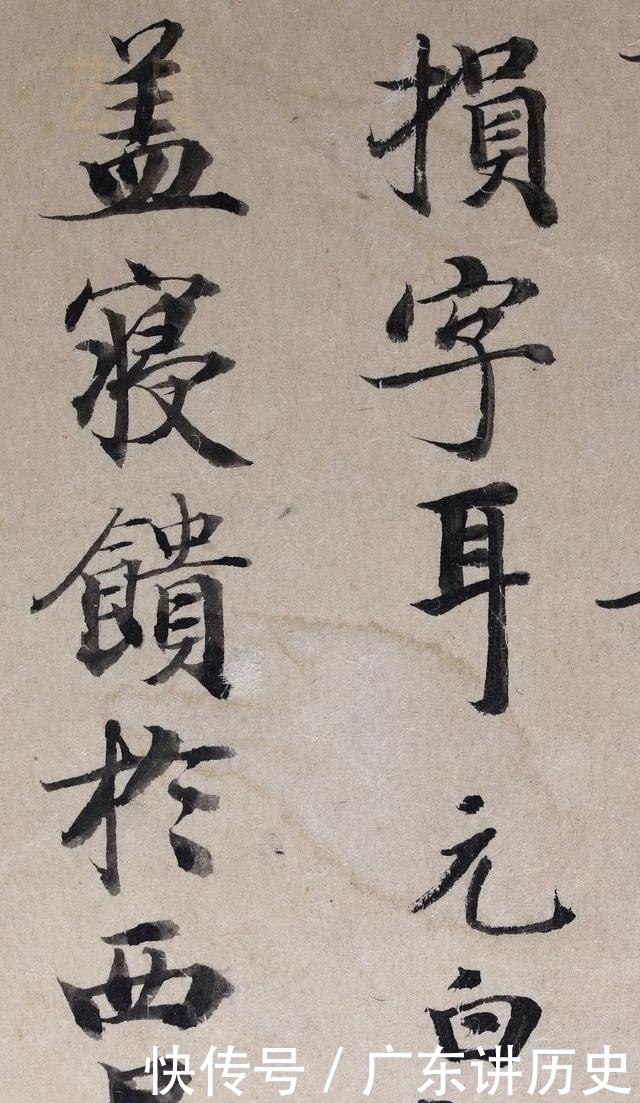 損字耳元
盖寢饋於西
快传号 / 广东讲历史